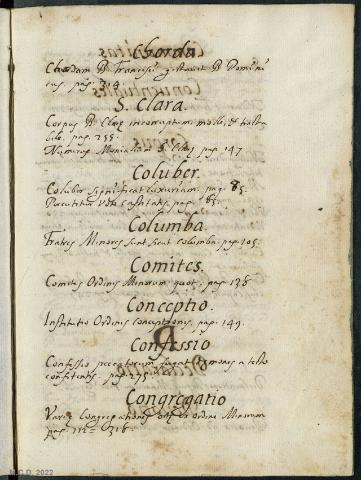 Chorda
Chordam B. Francisci gestavit B. Domini
cus. pag. 214.
S. Clara.
Corpus B. Claræ incorruptum molle, et tracta
bile. pag. 255.
Numerus Monialium S. Claræ pag. 147
Coluber.
Coluber significat luxuriam. pag. 85.
Percutitur casitatis pag. 85.
Columba.
Fratres Minores sunt sicut columba. pag. 105.
Comites.
Comites Ordinis Minorum quot. pag. 138
Conceptio.
Institutio Ordinis conceptionis. pag. 149.
Confessio
Confessio peccatorum fugat Demones a teste
confitentis. pag. 275.
Congregatio
Variæ Congregationes ex ordine Minorum
pag. 112 = 318
M.C.D. 2022